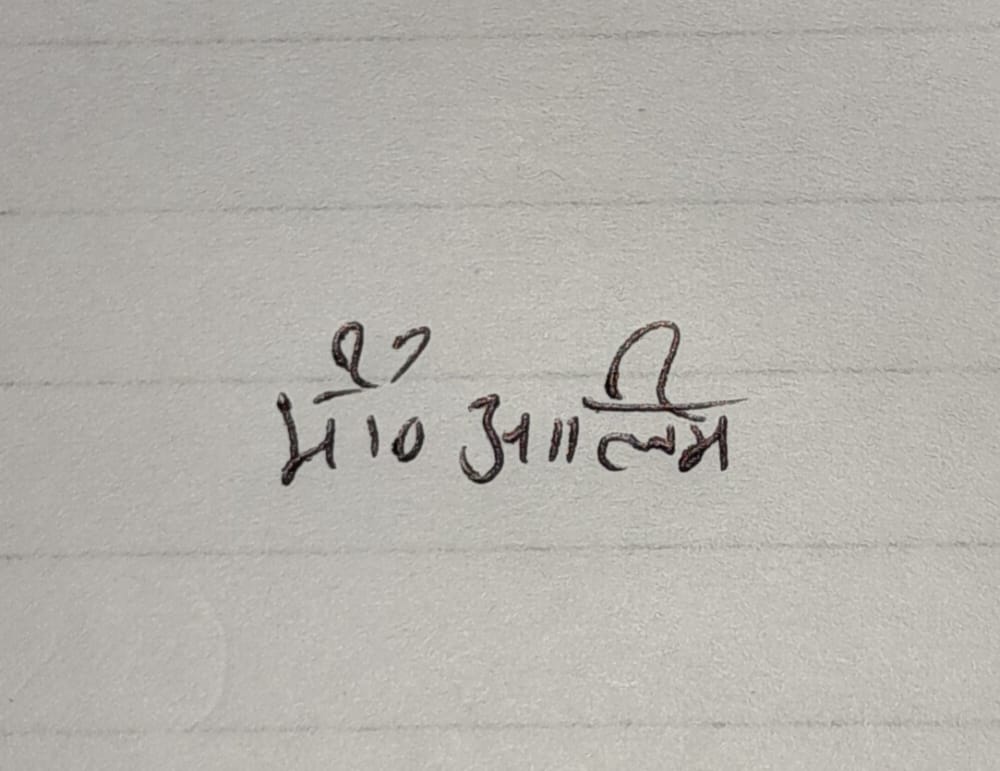 मो० आलिम